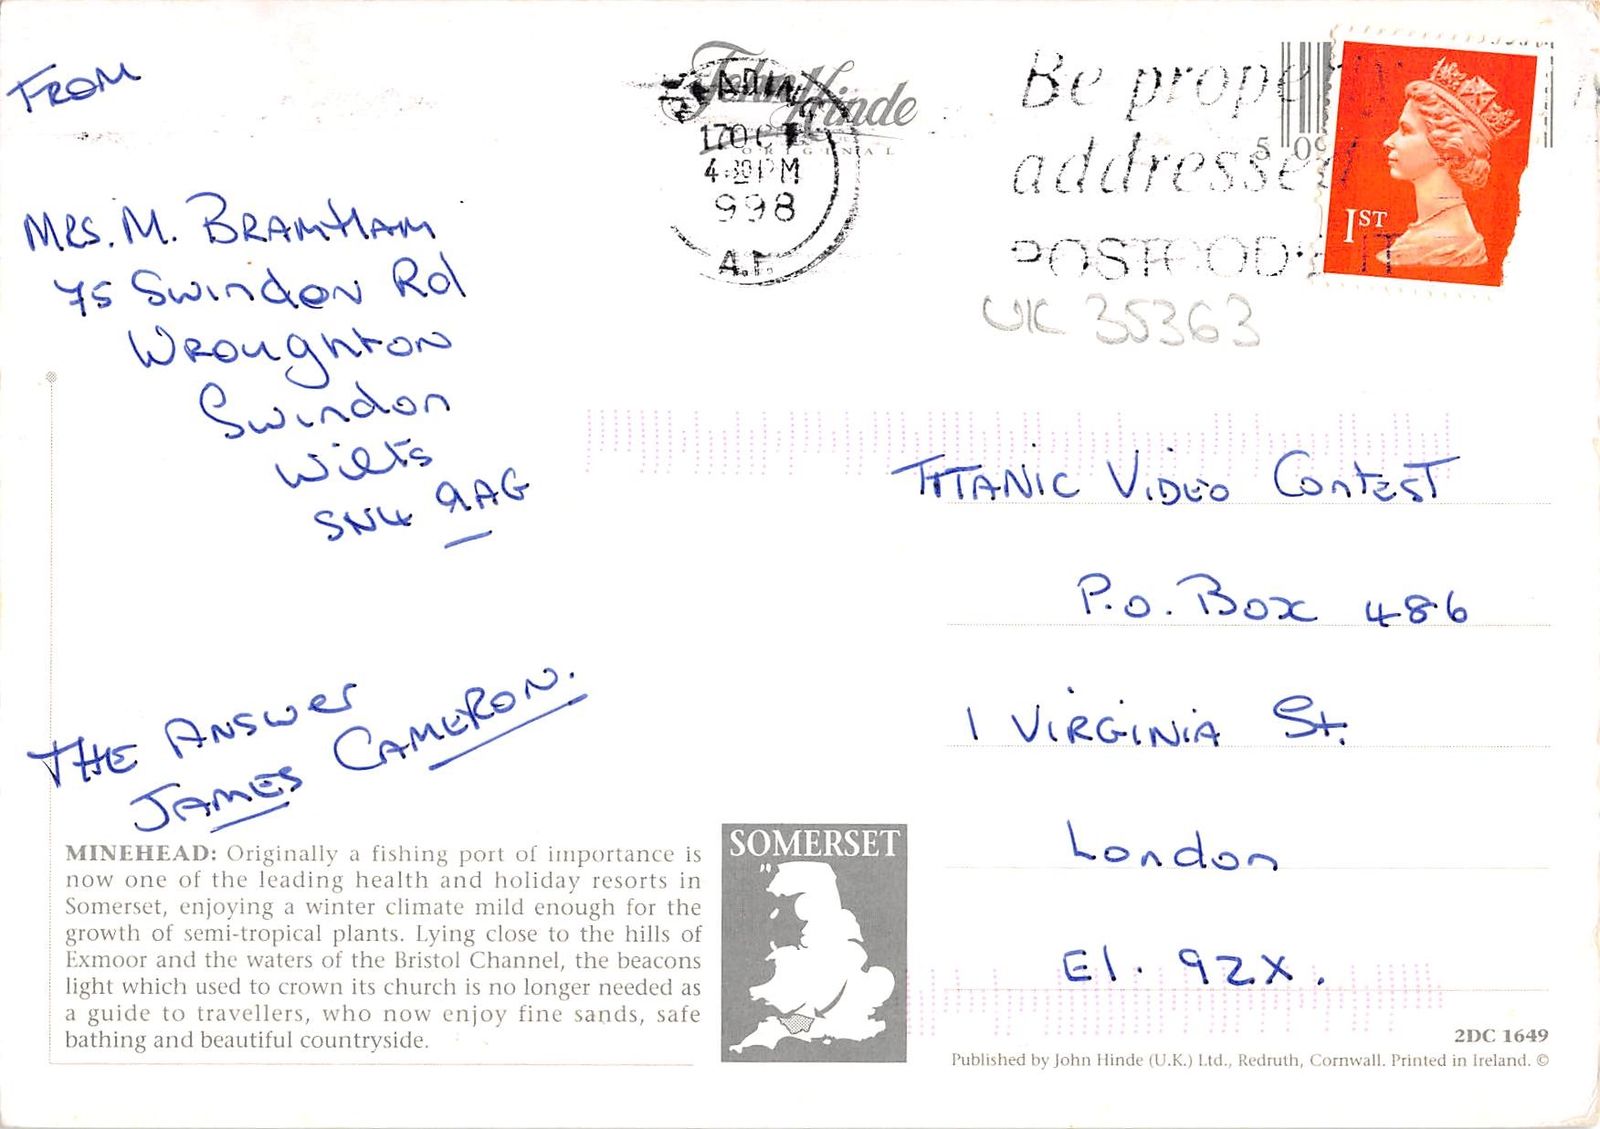 FROM
MRS. M. BRAMHAM
75 Swindon Rd
Wroughton
Swindon
Wilts
SN4 9AG
THE ANSWER
JAMES CAMERON.
John Hinde
ORIGINAL
READIN
17 OCT
4-30PM
998
A.T.
Be prope
addresse
POSTCOD IT
5 09
1ST
UK 35363
TITANIC VIDEO CONTEST
P.O. BOX 486
1 VIRGINIA St.
London
E1. 9ZX.
MINEHEAD: Originally a fishing port of importance is
now one of the leading health and holiday resorts in
Somerset, enjoying a winter climate mild enough for the
growth of semi-tropical plants. Lying close to the hills of
Exmoor and the waters of the Bristol Channel, the beacons
light which used to crown its church is no longer needed as
a guide to travellers, who now enjoy fine sands, safe
bathing and beautiful countryside.
SOMERSET
2DC 1649
Published by John Hinde (U.K.) Ltd., Redruth, Cornwall. Printed in Ireland. ©